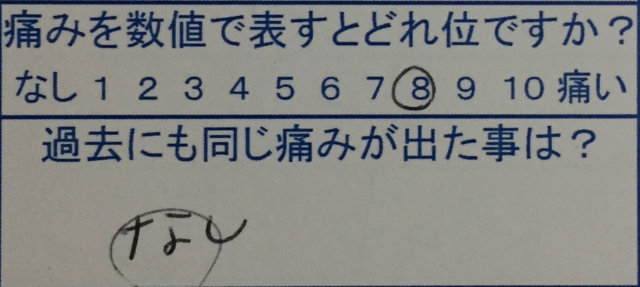 痛みを数値で表すとどれ位ですか？
なし 1 2 3 4 5 6 7 8 9 10 痛い
過去にも同じ痛みが出た事は？
なし